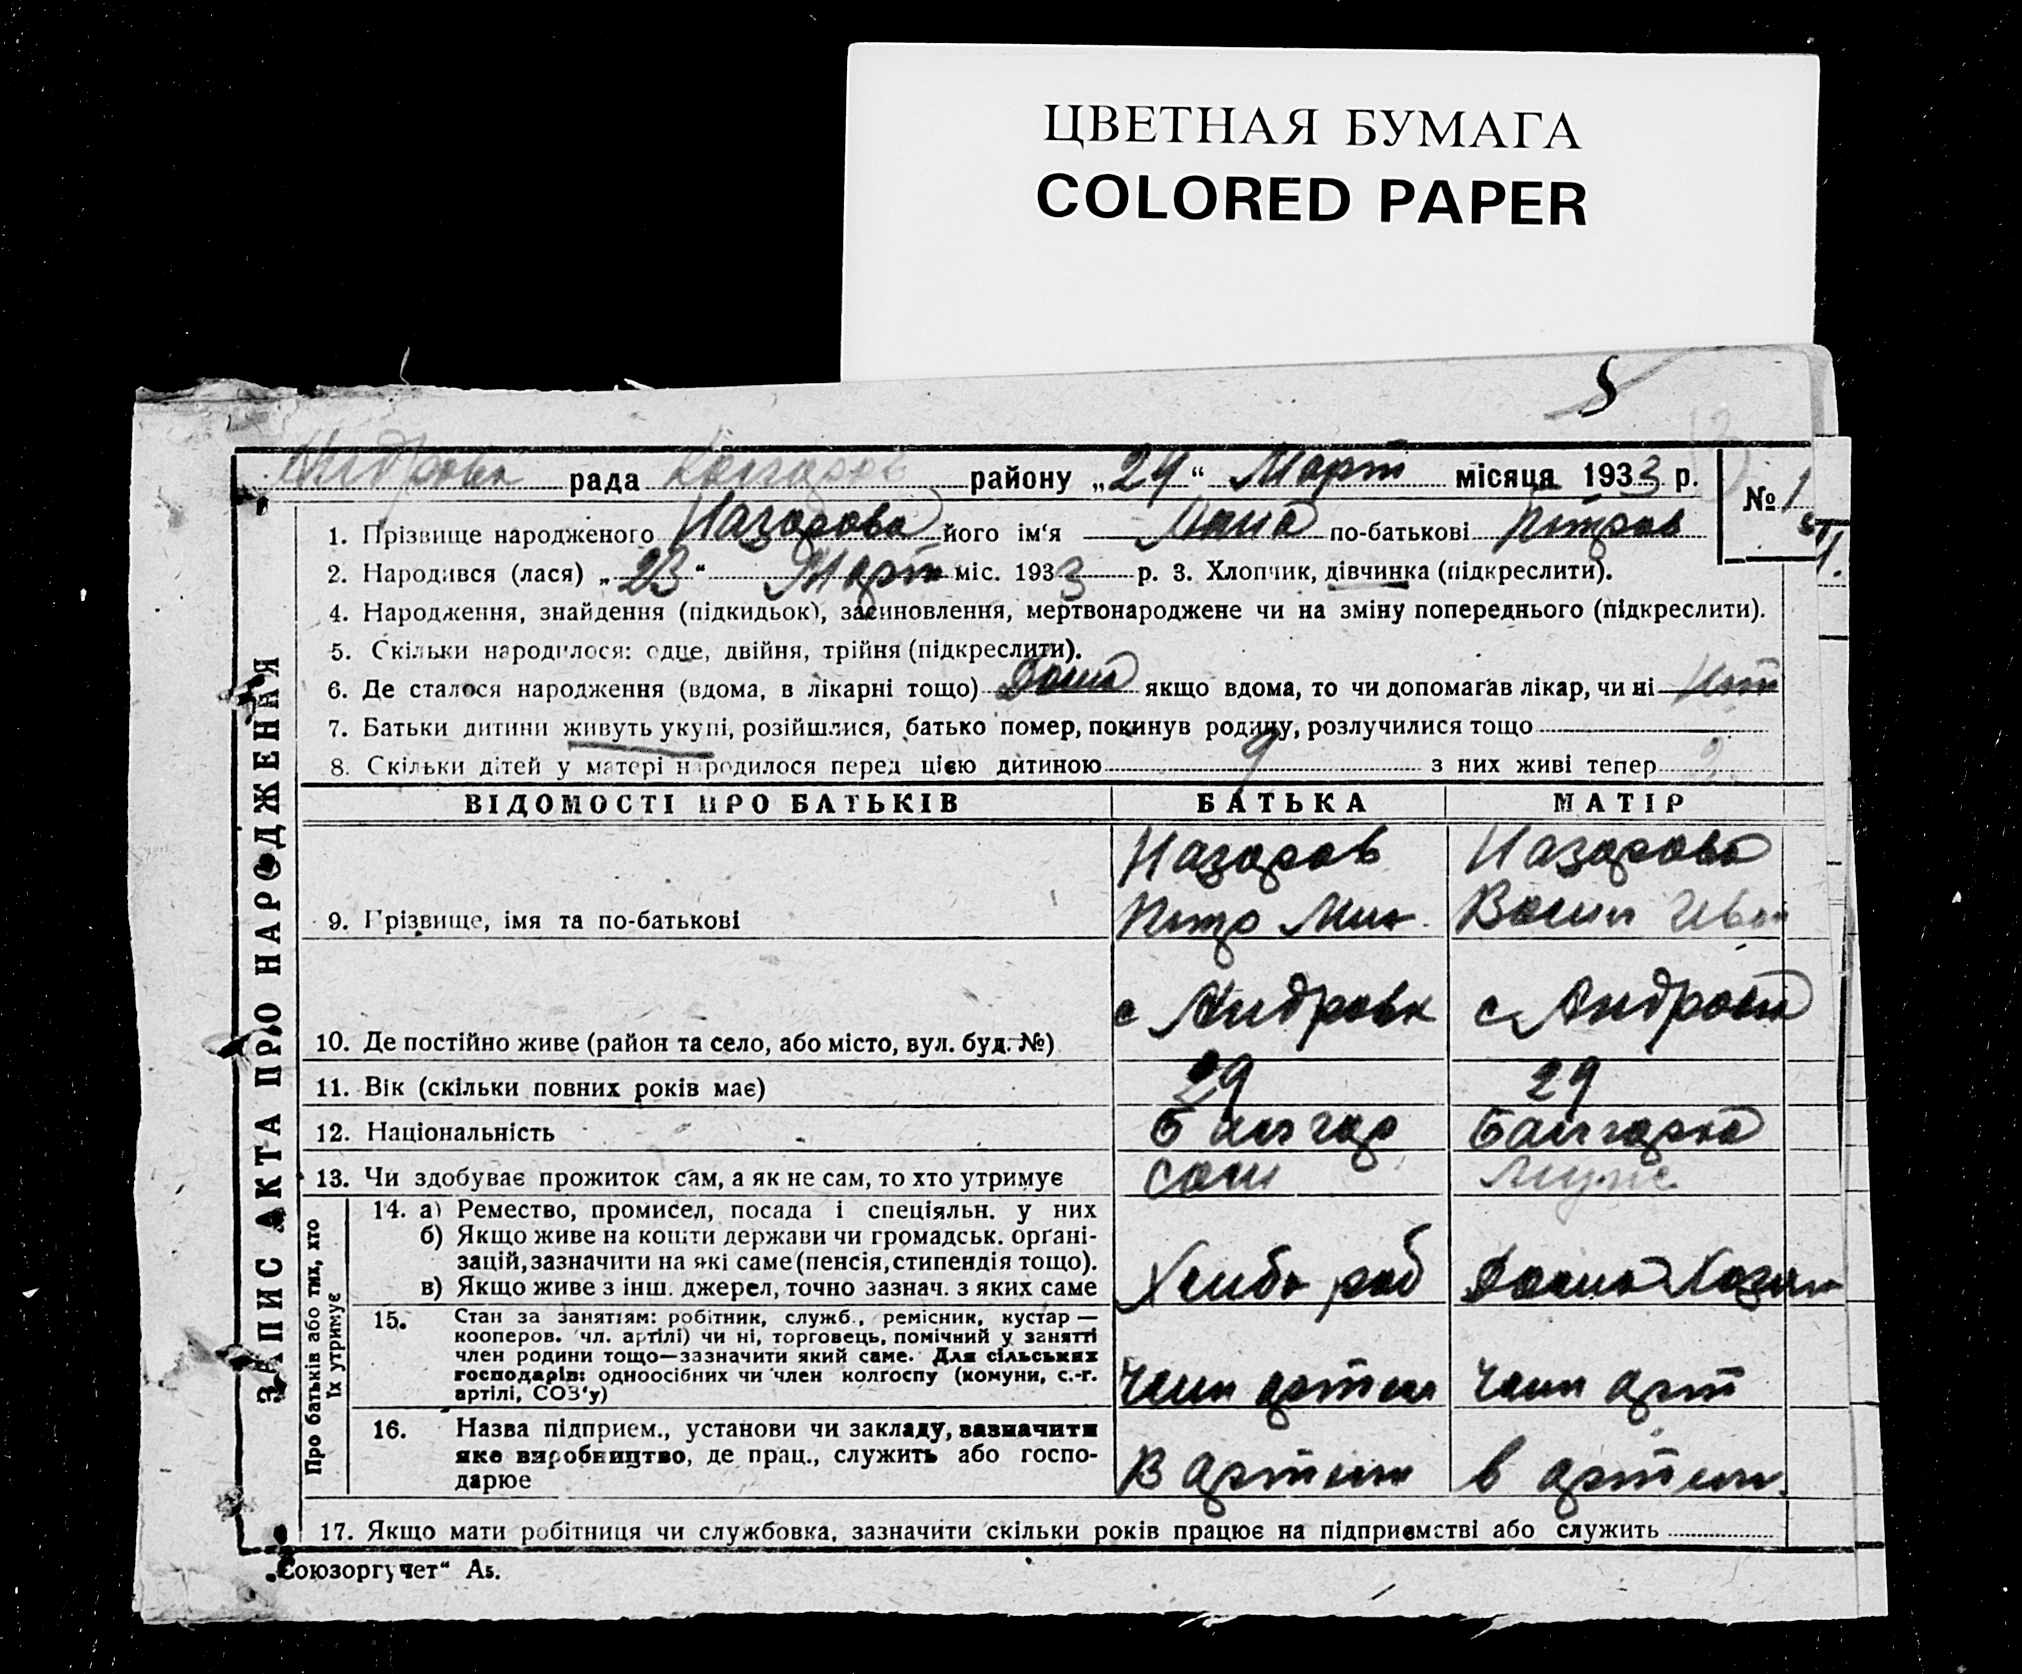 ЦВЕТНАЯ БУМАГА
COLORED PAPER
рада району „24“ Март місяця 1933 р. № 1
1. Прізвище народженого Назарова його ім‘я по-батькові Петров
2. Народився (лася) „23“ Март міс. 1933 р. 3. Хлопчик, дівчинка (підкреслити).
4. Народження, знайдення (підкидьок), засиновлення, мертвонароджене чи на зміну попереднього (підкреслити).
5. Скільки народилося: одце, двійня, трійня (підкреслити).
6. Де сталося народження (вдома, в лікарні тощо) Дома якщо вдома, то чи допомагав лікар, чи ні Нет
7. Батьки дитини живуть укупі, розійшлися, батько помер, покинув родину, розлучилися тощо
8. Скільки дітей у матері народилося перед цією дитиною з них живі тепер
ВІДОМОСТІ ПРО БАТЬКІВ БАТЬКА МАТІР
Назаров Назарова
9. Прізвище, імя та по-батькові Петро Мих. Васил Иван
10. Де постійно живе (район та село, або місто, вул. буд. №) с Андровк с Андровка
11. Вік (скільки повних років має) 29 29
12. Національність Балгар Балгарка
13. Чи здобуває прожиток сам, а як не сам, то хто утримує Сам Муже
14. а) Ремество, промисел, посада і спеціяльн. у них
б) Якщо живе на кошти держави чи громадськ. орґані-
зацій, зазначити на які саме (пенсія, стипендія тощо).
в) Якщо живе з інш. джерел, точно зазнач. з яких саме Хлибо роб Дома Хозяи
15. Стан за заняттям: робітник, служб., ремісник, кустар —
кооперов. чл. артілі) чи ні, торговець, помічний у занятті
член родини тощо—зазначити який саме. Для сільських
господарів: одноосібних чи член колгоспу (комуни, с.-г.
артілі, СОЗ‘у) Член артел Член арт
16. Назва підприєм., установи чи закладу, зазначити
яке виробництво, де прац., служить або госпо-
дарює В артели в артели
17. Якщо мати робітниця чи службовка, зазначити скільки років працює на підприємстві або служить
ЗАПИС АКТА ПРО НАРОДЖЕННЯ
Про батьків або тих, хто
їх утримує
„Союзоргучет“ А5.